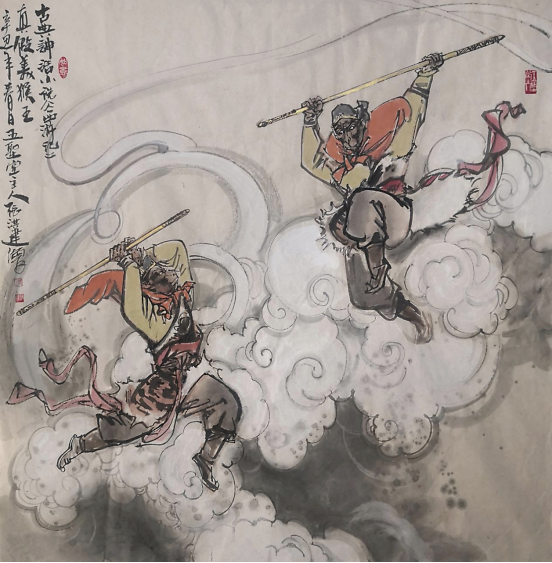 古典神话小说《西游记》
真假美猴王
辛丑年春月五聖堂主人张洪建画